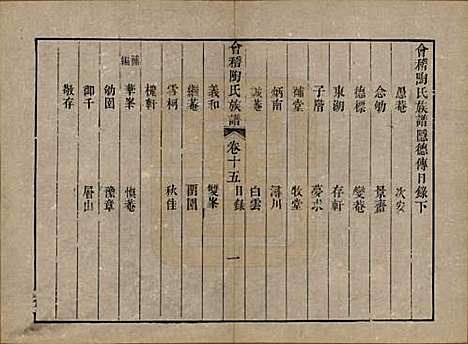 會稽陶氏族譜隱德傳目錄下
愚菴 次安
念劬 景齋
德標 變菴
東湖 存軒
子階 夢求
補堂 牧堂
炳南 濤川
誠菴 白雲
會稽陶氏族譜 卷十五 目錄 一
義和 雙峯
繼菴 蘭園
雪柯 秋佳
槐軒
補編
華峯 慎菴
勉園 豫章
御千 眉山
敬存